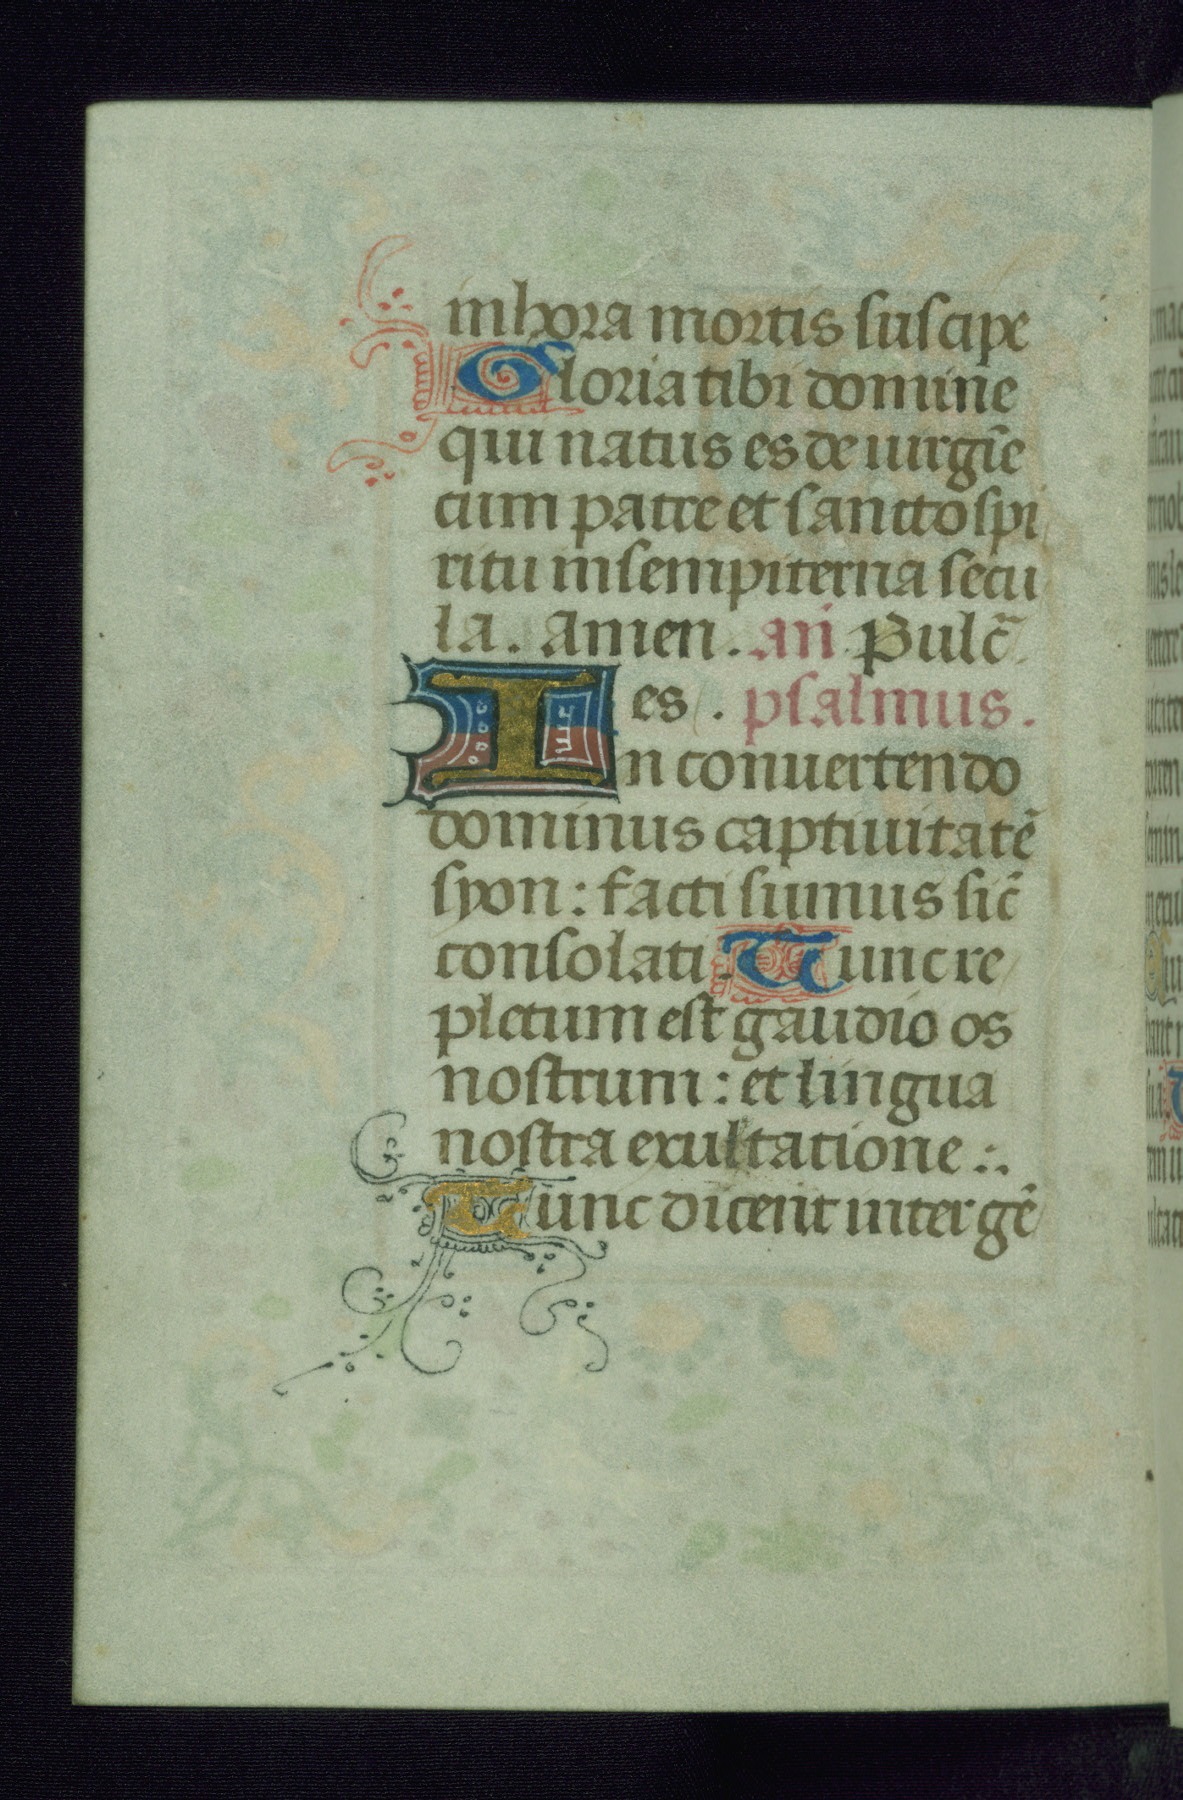 in hora mortis suscipe
Gloria tibi domine
qui natus es de uirgīe
cum patre et sancto spi
ritu in sempiterna secu
la. Amen. añ Pulc̄
es. psalmus.
In conuertendo
dominus captiuitatē
syon: facti sumus sic̄
consolati. Tunc re
pletum est gaudio os
nostrum: et lingua
nostra exultatione :.
Tunc dicent inter gē